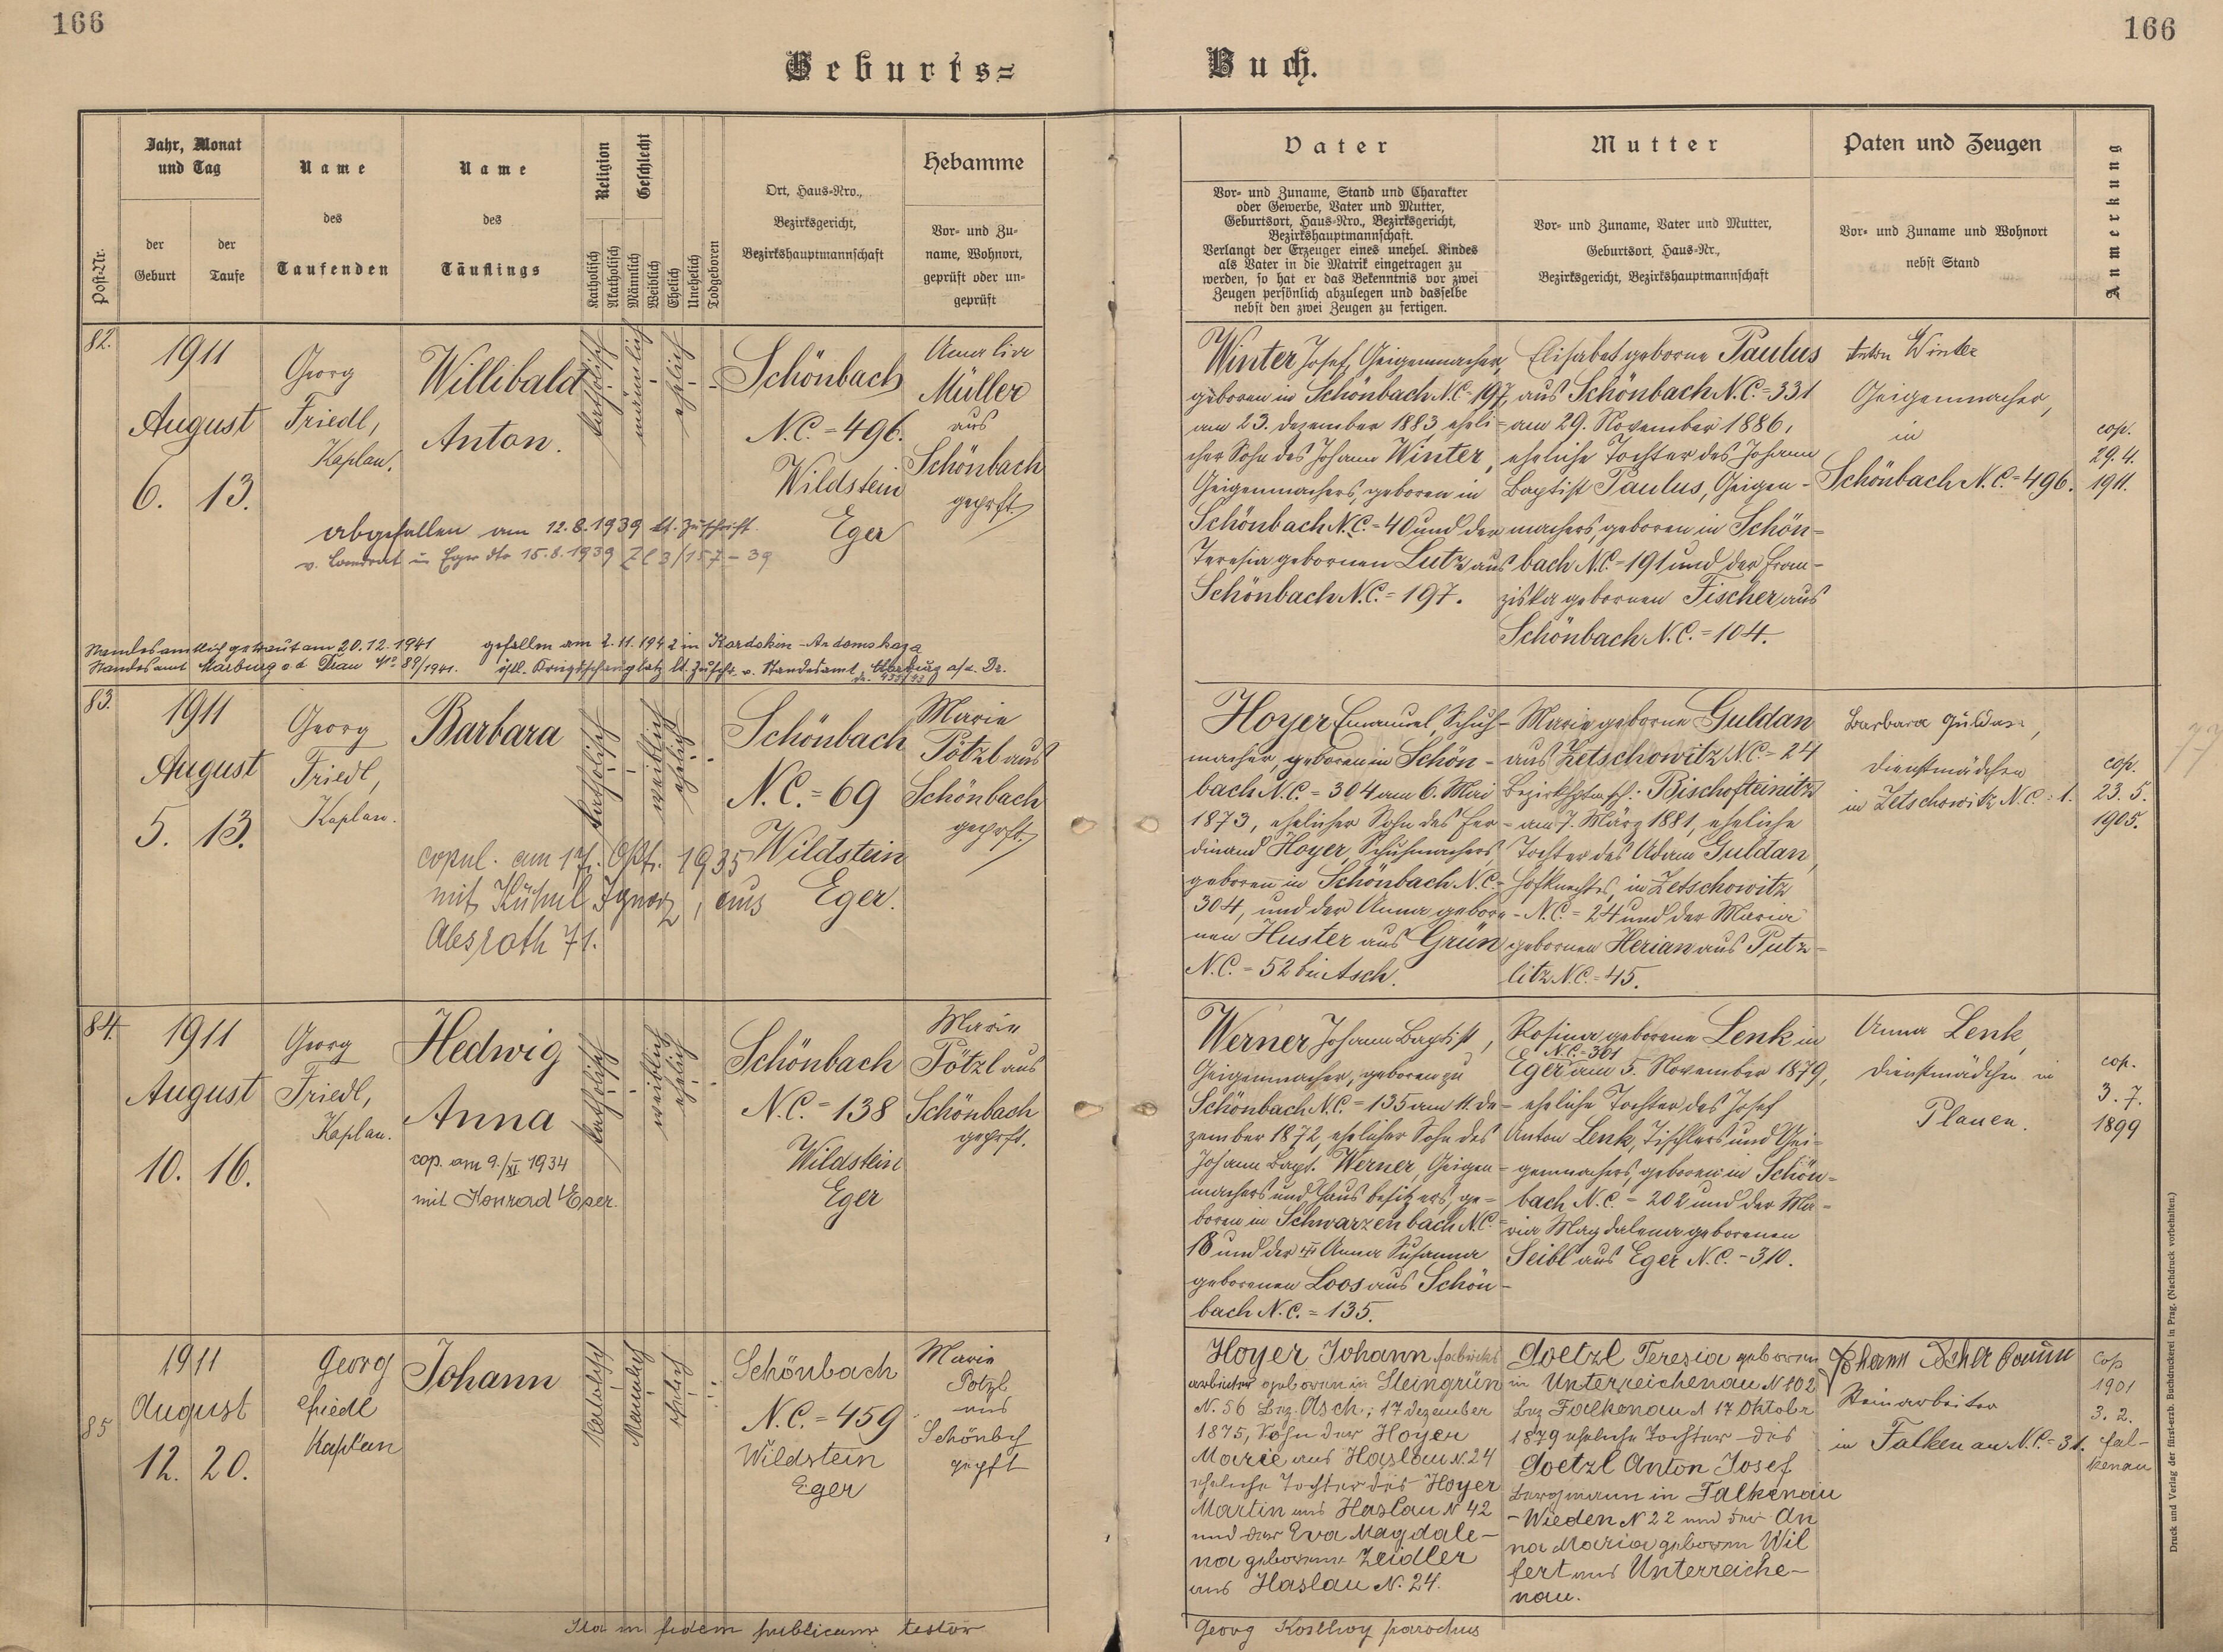 166
166
Geburts=
Buch.
Post-Nr.
Jahr, Monat
und Tag
der
Geburt
der
Taufe
Name
des
Taufenden
Name
des
Täuflings
Religion
Katholisch
Akatholisch
Geschlecht
Männlich
Weiblich
Ehelich
Unehelich
Todgeboren
Ort, Haus=Nro.,
Bezirksgericht,
Bezirkshauptmannschaft
Hebamme
Vor= und Zu=
name, Wohnort,
geprüft oder un=
geprüft
Vater
Vor= und Zuname, Stand und Charakter
oder Gewerbe, Vater und Mutter,
Geburtsort, Haus=Nro., Bezirksgericht,
Bezirkshauptmannschaft.
Verlangt der Erzeuger eines unehel. Kindes
als Vater in die Matrik eingetragen zu
werden, so hat er das Bekenntnis vor zwei
Zeugen persönlich abzulegen und dasselbe
nebst den zwei Zeugen zu fertigen.
Mutter
Vor= und Zuname, Vater und Mutter,
Geburtsort, Haus=Nr.,
Bezirksgericht, Bezirkshauptmannschaft
Paten und Zeugen
Vor= und Zuname und Wohnort
nebst Stand
Anmerkung
82.
1911
August
6. 13.
Georg
Friedl,
Kaplan.
Willibald
Anton.
katholisch
männlich
ehelich
Schönbach
N.C.=496.
Wildstein
Eger
Amalia
Müller
aus
Schönbach
geprft.
abgefallen am 12.8.1939 lt. Zuschrift
v. Landrat in Eger dto 15.8.1939 Zl 3/157-39
Standesamtlich getraut am 20.12.1941
Standesamt Marburg a d Drau No 89/1941.
gefallen am 2.11.1942 in
östl. Kriegsschauplatz lt. Zuschr. v. Standesamt Marburg a/d. Dr.
Winter Josef, Geigenmacher,
geboren in Schönbach N.C.=197,
am 23. Dezember 1883, eheli=
cher Sohn des Johann Winter,
Geigenmachers, geboren in
Schönbach N.C.=40 und der
Teresia gebornen Lutz aus
Schönbach N.C.=197.
Elisabet geborne Paulus
aus Schönbach N.C.=331
am 29. November 1886,
eheliche Tochter des Johann
Baptist Paulus, Geigen=
machers, geboren in Schön=
bach N.C.=191 und der Fran=
ziska gebornen Fischer aus
Schönbach N.C.=104.
Anton Winter
Geigenmacher,
in
Schönbach N.C.=496.
cop.
29.4.
1911.
83.
1911
August
5. 13.
Georg
Friedl,
Kaplan.
Barbara
katholisch
weiblich
ehelich
Schönbach
N.C.=69
Wildstein
Eger.
Marie
Pötzl aus
Schönbach
geprft.
copul. am 17. Okt. 1935
mit Kühnl Ignaz, aus
Absroth 71.
Hoyer Emanuel, Schuh=
macher, geboren in Schön=
bach N.C.=304 am 6. Mai
1873, ehelicher Sohn des Fer=
dinand Hoyer, Schuhmachers,
geboren in Schönbach N.C.=
304, und der Anna gebor=
nen Huster aus Grün
N.C.=52 bei Asch.
Marie geborne Guldan
aus Zetschowitz N.C.=24
Bezirkshptmsch.: Bischofteinitz
am 7. März 1881, eheliche
Tochter des Adam Guldan,
Hofknechts, in Zetschowitz
N.C.=24 und der Maria
gebornen Herian aus Putz=
litz N.C.=45.
Barbara Guldan,
Dienstmädchen
in Zetschowitz N.C.:1.
cop.
23.5.
1905.
77
84.
1911
August
10. 16.
Georg
Friedl,
Kaplan.
Hedwig
Anna
katholisch
weiblich
ehelich
cop. am 9./XI. 1934
mit Konrad Eser.
Schönbach
N.C.=138
Wildstein
Eger
Marie
Pötzl aus
Schönbach
geprft.
Werner Johann Baptist,
Geigenmacher, geboren zu
Schönbach N.C.=135 am 11. De=
zember 1872, ehelicher Sohn des
Johann Bapt. Werner, Geigen=
machers und Hausbesitzers, ge=
boren in Schwarzenbach N.C.=
18 und der Anna Susanna
geborenen Loos aus Schön=
bach N.C.=135.
Rosina geborene Lenk in
N.C.=301
Eger am 5. November 1879,
eheliche Tochter des Josef
Anton Lenk, Tischlers und Gei=
genmachers, geboren in Schön=
bach N.C.=202 und der Ma=
ria Magdalena geborenen
Seibl aus Eger N.C.=310.
Anna Lenk,
Dienstmädchen in
Plauen.
cop.
3.7.
1899
85
1911
August
12. 20.
Georg
Friedl
Kaplan
Johann
Katholisch
Männlich
ehelich
Schönbach
N.C.=459
Wildstein
Eger
Marie
Potzl
aus
Schönbch
geprft
Hoyer Johann Fabriks
arbeiter geboren in Steingrün
N. 56 Bez. Asch, 17 Dezember
1875, Sohn der Hoyer
Marie aus Haslau N. 24
eheliche Tochter des Hoyer
Martin aus Haslau N 42
und der Eva Magdale=
na geborene Zeidler
aus Haslau N. 24.
Goetzl Teresia geboren
in Unterreichenau N 102
Bez Falkenau d 17 Oktober
1879 eheliche Tochter des
Goetzl Anton Josef
Bergmann in Falkenau
-Wieden N 22 und der An
na Maria geboren Wil
fert aus Unterreiche=
nau.
Johann
Steinarbeiter
in Falkenau N.C.=31.
Cop
1901
3.2.
Fal=
kenau
Ita in fidem publicam testor
Georg Kosthoy parochus
Druck und Verlag der fürst-erzb. Buchdruckerei in Prag. (Nachdruck vorbehalten.)